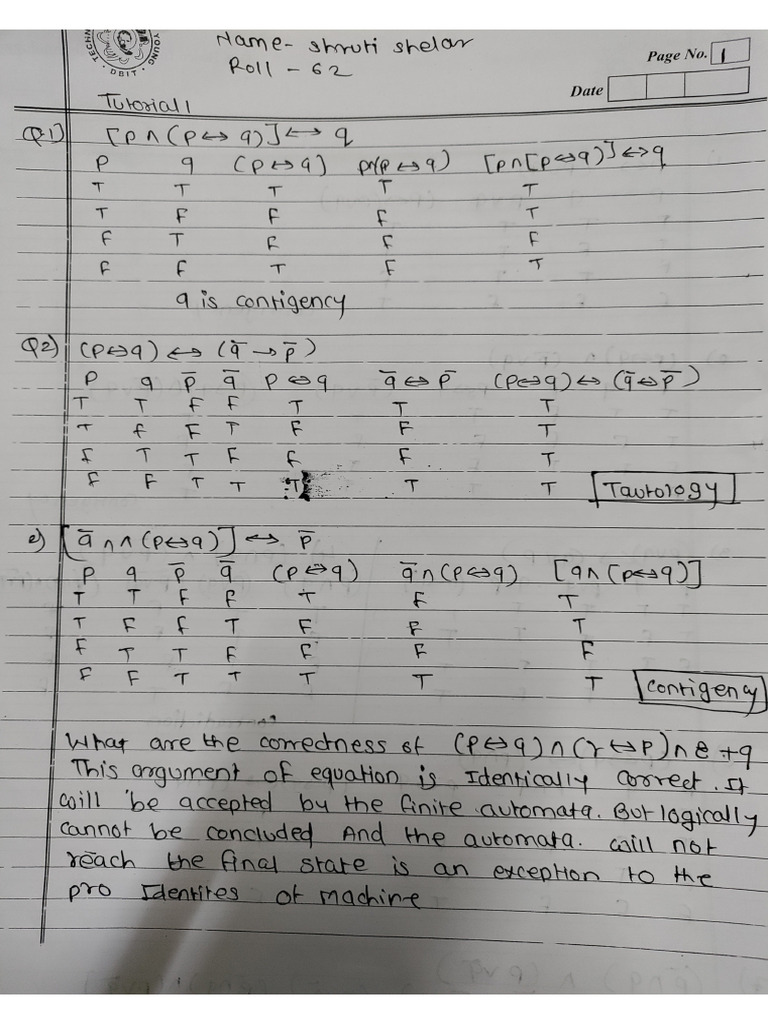 TECHN YOUNG
• DBIT •
Name - Shruti Shelar
Roll - 62
Page No. 1
Date
Tutorial 1
Q1) [p ∧ (p ↔ q)] ↔ q
p q (p ↔ q) p∧(p ↔ q) [p∧[p↔q)] ↔ q
T T T T T
T F F F T
F T F F F
F F T F T
q is contigency
Q2) (p↔q) ↔ (q̄ → p̄)
p q p̄ q̄ p ↔ q q̄ ↔ p̄ (p↔q) ↔ (q̄ ↔ p̄)
T T F F T T T
T f F T F F T
f T T F f F T
F F T T T T T Tautology
e) [q̄ ∧ ∧ (p↔q)] ↔ p̄
p q p̄ q̄ (p ↔ q) q̄ ∧ (p↔q) [q∧ (p↔q)]
T T F F T F T
T F F T F F T
F T T F F F F
F F T T T T T Contigency
What are the correctness of (p↔q) ∧ (r ↔ p) ∧ +q
This argument of equation is Identically correct. It
will be accepted by the finite automata. But logically
cannot be concluded And the automata. will not
reach the final state is an exception to the
pro Identites of machine